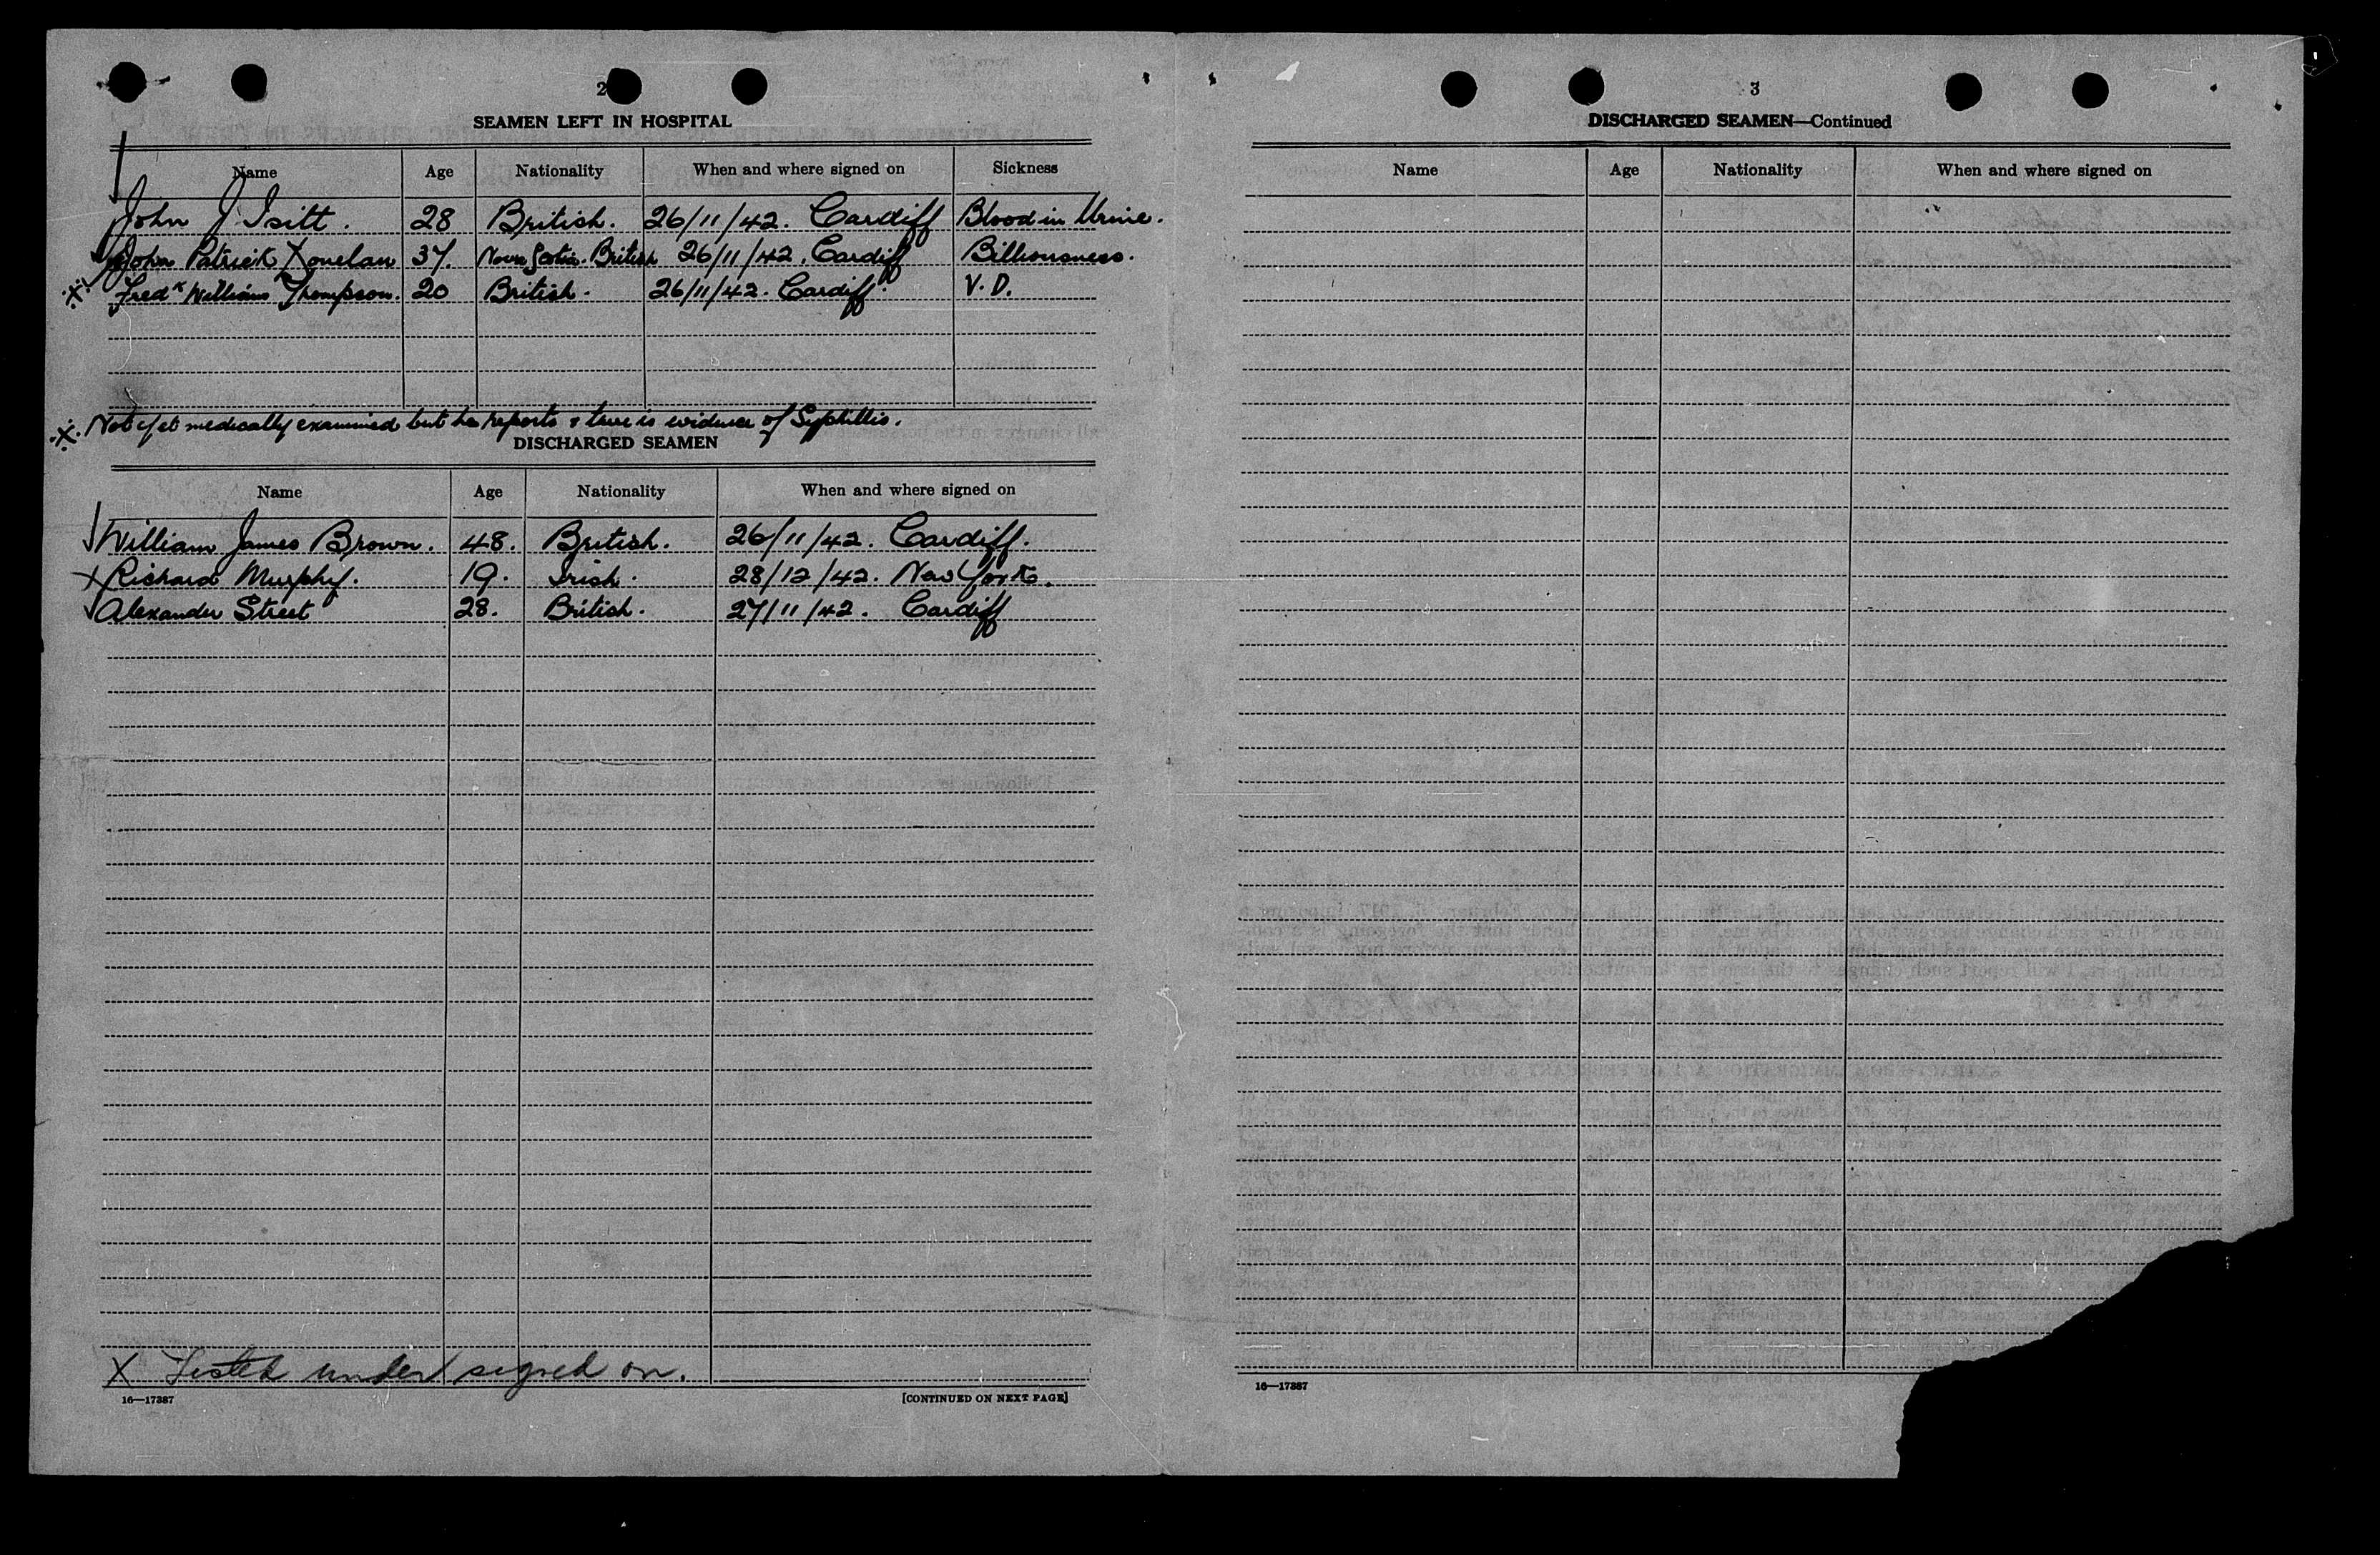 2
SEAMEN LEFT IN HOSPITAL
Name Age Nationality When and where signed on Sickness
John J. Isitt. 28 British. 26/11/42. Cardiff Blood in Urine.
John Patrick 37. Nova Scotia. British 26/11/42. Cardiff Billiousness.
.X. Fredk William Thompson. 20 British. 26/11/42. Cardiff. V.D.
.X. Not yet medically examined but he reports & there is evidence of Syphillis.
DISCHARGED SEAMEN
Name Age Nationality When and where signed on
William James Brown. 48. British. 26/11/42. Cardiff.
X Richard Murphy. 19. Irish. 28/12/42. New York.
Alexander Street 28. British. 27/11/42. Cardiff
X Listed under signed on.
16—17387
[CONTINUED ON NEXT PAGE]
3
DISCHARGED SEAMEN—Continued
Name Age Nationality When and where signed on
16—17387